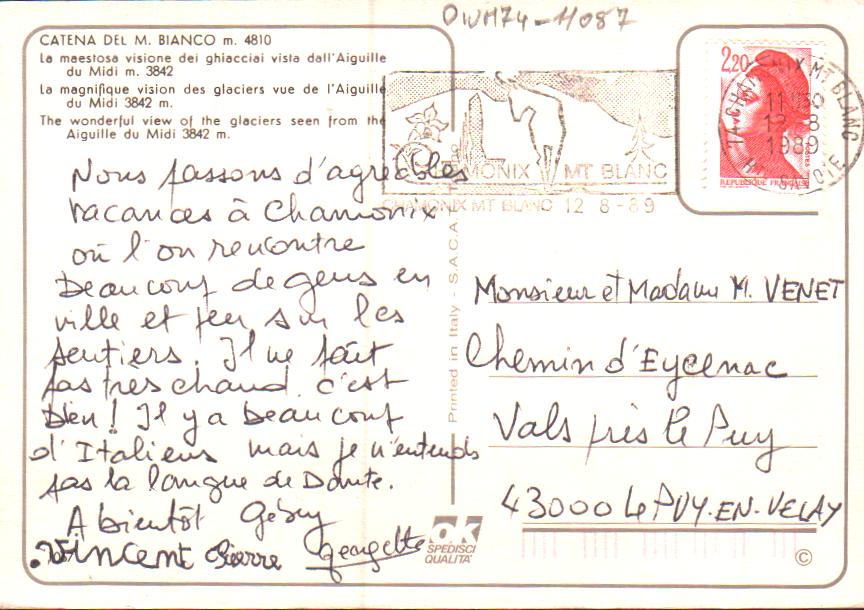 OWM74-11087
CATENA DEL M. BIANCO m. 4810
La maestosa visione dei ghiacciai vista dall'Aiguille
du Midi m. 3842
La magnifique vision des glaciers vue de l'Aiguille
du Midi 3842 m.
The wonderful view of the glaciers seen from the
Aiguille du Midi 3842 m.
Nous passons d'agréables
vacances à Chamonix
où l'on rencontre
beaucoup de gens en
ville et peu sur les
sentiers. Il ne fait
pas très chaud, c'est
bien! Il y a beaucoup
d'Italiens mais je n'entends
pas la langue de Dante.
A bientôt
Vincent Pierre Georgette
CHAMONIX MT BLANC
CHAMONIX MT BLANC 12 8-89
2,20
REPUBLIQUE FRANÇAISE
74 CHAMONIX MT BLANC
11H30
12-8
1989
HTE SAVOIE
Printed in Italy - S.A.C.A.T.
Monsieur et Madame M. VENET
Chemin d'Eycenac
Vals près le Puy
43000 Le PUY-EN-VELAY
OK
SPEDISCI
QUALITA'
©